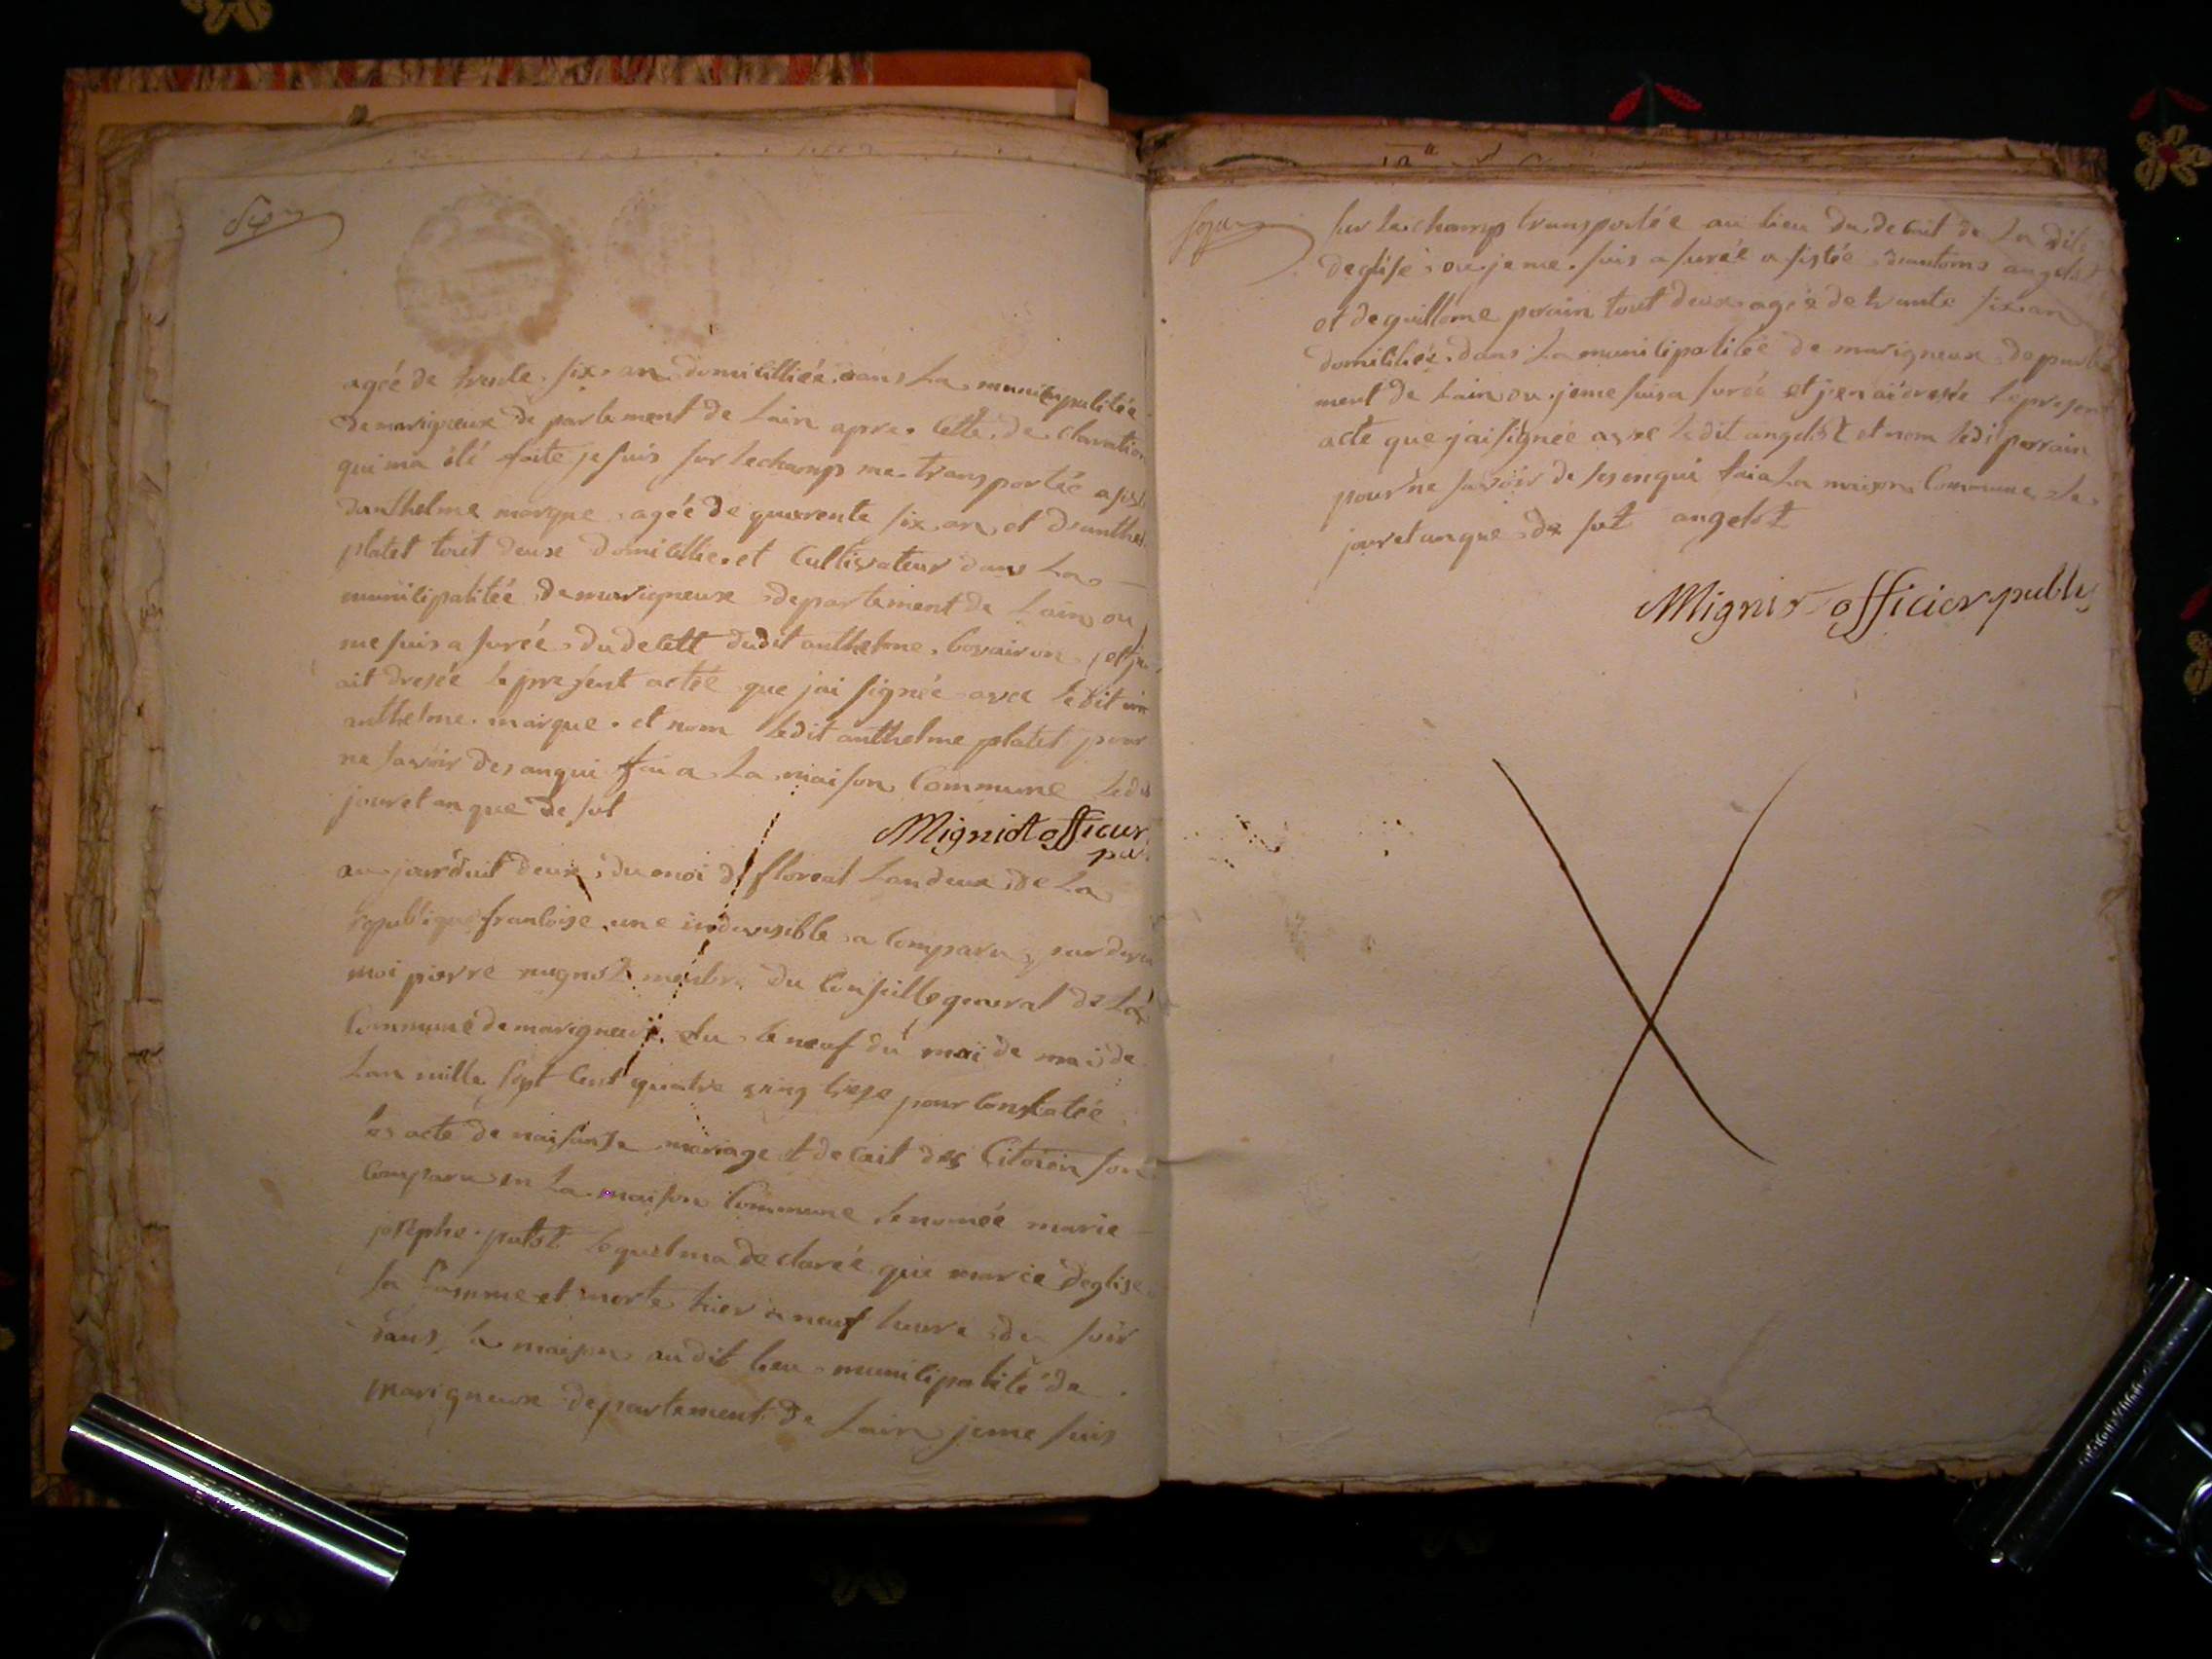 agée de trente six an domicilliée dans La municipalitée
de marigneux de partement de Lain apre cette de claration
qui ma été faite je suis sur lechamp me transportée asisté
danthelme marque agée de quarente six an et danthel
platet tout deuse domicillie et Cultivateur dans La
municipalitée de marigneux departement de Lain ou
me suis a surée du decett dudit anthelme bovairon et jen
ait dresée le present actée que jai signée avec ledit
anthelme marque et nom ledit anthelme platet pour
ne savoir des anqui fai a La maison Commune ledit
jour et an que de sut
Migniot officier
pu
au jourduit deux du moi de floreal Landeux de La
republique francoise une indivisible a Comparu par devan
moi pierre mignot menbre du Conseille general de La
Commune de marigneux elu le neuf du moi de mai de
Lan mille sept Cent quatre ving treze pour Constatée
les acte de naisance mariage et decait des Citoien son
Comparu en La maison Commune le nomée marie
josephe putot lequel ma declarée que marie deglise
sa famme et morte hier a neuf heure du soir
dans sa maison audit lieu municipalité de
marigneux departement de Lain jeme suis
sur lechamp transportée au lieu du decait de La dite
deglise ou je me suis a surée asistée dantoine angelot
et de guillome perain tout deux agée de trante six an
domiciliée dans La municipalitée de marigneux departe
ment de Lain ou jeme suis a surée et jen ai dresée le present
acte que jai signée avec ledit angelot et nom ledit perrain
pour ne savoir de ses enqui fai a La maison Commune le
jour et an que de sut angelot
Mignot officier public